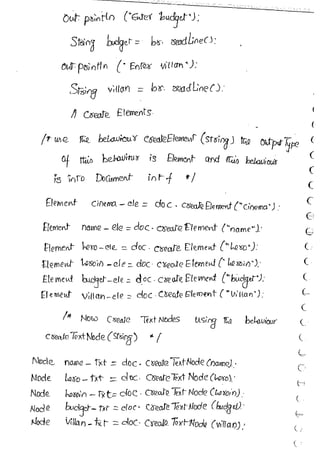 out. println ("Enter budget");
String budget = br. readLine();
out. println (" Enter villan ");
String villan = br. readLine();
// Create Elements.
/* use the behaviour createElement (string) the output Type
of this behaviour is Element and this behaviour
is into Document intf */
Element cinema - ele = doc. createElement ("cinema");
Element name - ele = doc. create Element ("name");
Element hero - ele = doc. create Element ("hero");
Element heroin - ele = doc. create Element (" heroin");
Element budget - ele = doc. create Element ("budget");
Element villan - ele = doc. create Element ("villan");
/* Now create Text Nodes using the behaviour
createTextNode (string) */
Node name - txt = doc. createTextNode (name);
Node hero - txt = doc. create Text Node (hero);
Node heroin - txt = doc. create Text Node (heroin);
Node budget - txt = doc. create Text Node (budget);
Node villan - txt = doc. create TextNode (villan);